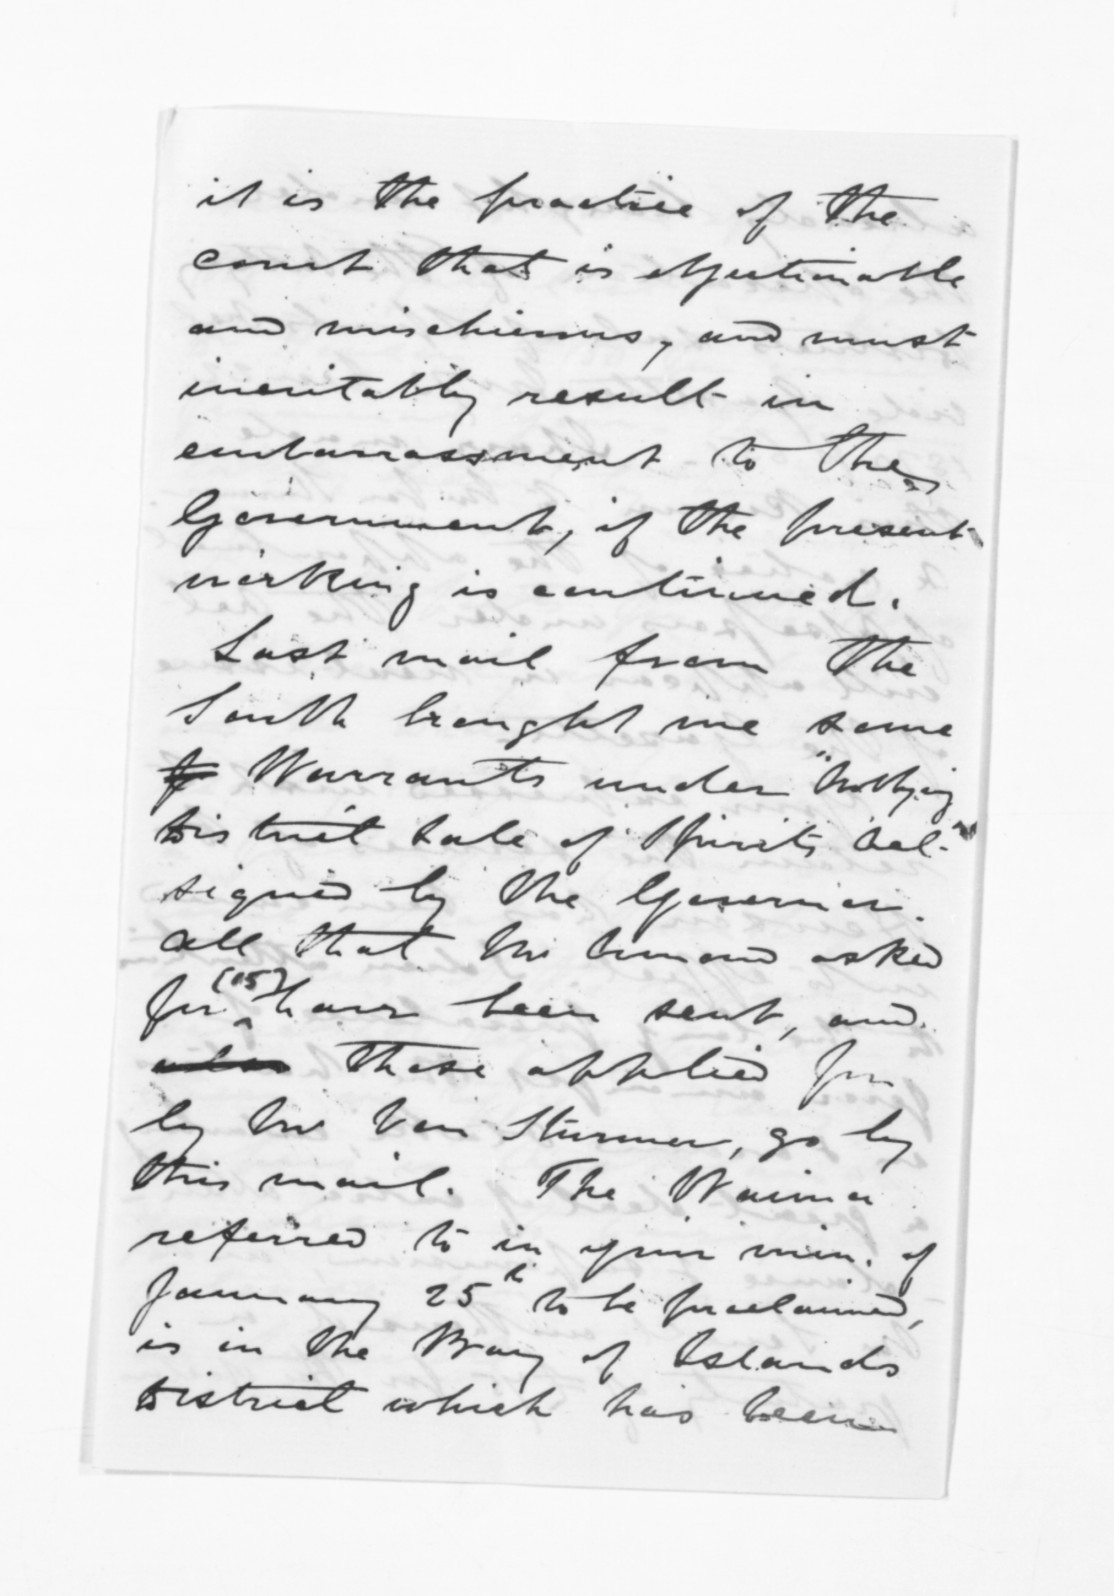 it is the practice of the
court that is objectionable
and mischievous, and must
inevitably result in
embarrassment to the
Government, if the present
working is continued.
Last mail from the
South brought me some
Warrants under "Native
District Sale of Spirits Act"
signed by the Governor.
All that Mr asked
for (15) have been sent, and
those applied for
by Mr Von Sturmer, go by
this mail. The Waima
referred to in your mem. of
January 25th to be proclaimed,
is in the Bay of Islands
District which has been